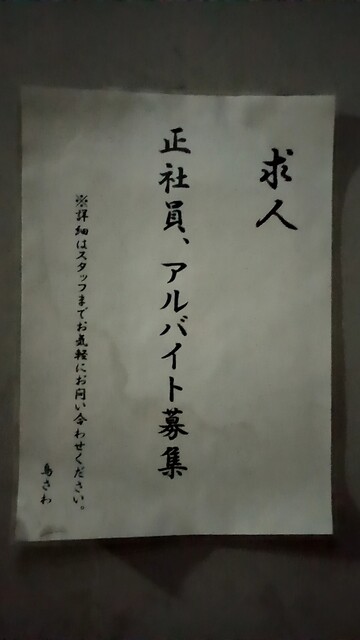 求人
正社員、アルバイト募集
※詳細はスタッフまでお気軽にお問い合わせください。
鳥さわ